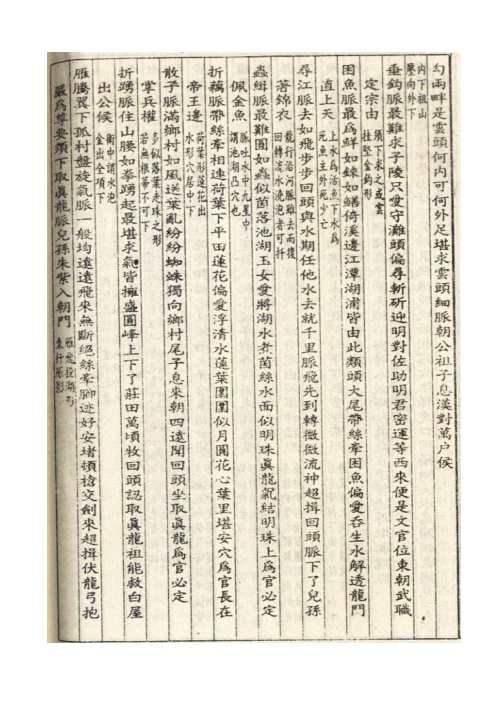 勾兩畔是雲頭何內可何外足堪求雲頭細脈朝公祖子息漢對萬户侯
內下祖山
壓向外下
垂鈎脈最難求子陵只愛守灘頭偏尋斬斫迎明對佐助明君密運等西來便是文官位東朝武職
定宗由
困魚脈最爲鮮如鍊如鱔倚溪邊江潭湖浦皆由此類頭大尾帶絲牽困魚偏愛吞生水解透龍門
直上天
上水爲活魚下水爲
死魚主外死少亡
尋江脈去如飛步步回頭與水期任他水去就千里脈飛先到轉微微流神超揖回頭脈下了兒孫
著錦衣
龍行沿河脈雖去而復
回轉定水遶抱者可扦
蟲緝脈最難圖如蟲似茵落池湖玉女愛將湖水煮茵絲水面似明珠眞龍氣結明珠上爲官必定
佩金魚
脈吐水中九星中
謂池湖凸穴也
折藕脈帶絲牽相連荷葉下平田蓮花偏愛浮清水蓮葉團團似月圓花心葉里堪安穴爲官長在
帝王邊
荷葉形蓮花出
水形穴居中下
散子脈滿鄉村如風送葉亂紛紛蜘蛛獨向鄉村尾子息來朝四遠聞回頭坐取眞龍爲官必定
掌兵權
多似落葉走珠之形
若無根蒂不可下
折踴脈住山腰如拳踴起最堪求氣皆擁盛圓峰上下了莊田萬頃牧回頭認取眞龍祖能救白屋
出公候
衝中謂水泡
金出全項下
雁騰翼下孤村盤旋氣脈一般均遠遠飛來無斷絕絲牽脚迹好安堵頓槍交劍來超揖伏龍弓抱
最爲尊要須下取眞龍脈兒孫朱紫入朝門